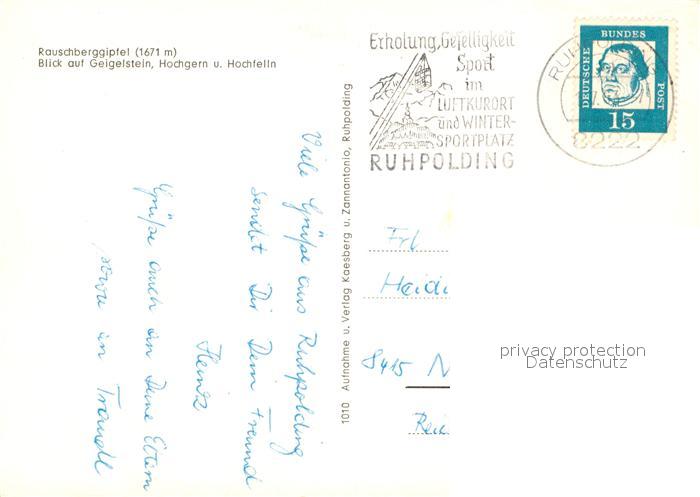 Rauschberggipfel (1671 m)
Blick auf Geigelstein, Hochgern u. Hochfelln
Erholung, Geselligkeit
Sport
im
LUFTKURORT
und WINTER-
SPORTPLATZ
RUHPOLDING
RUHPOLDING
8222
DEUTSCHE BUNDES POST
15
1010 Aufnahme u. Verlag Kaesberg u. Zannantonio, Ruhpolding
Viele Grüße aus Ruhpolding
sendet Dir Dein Freund
Heinz
Grüße auch an Deine Eltern
sowie an Traudl
Frl
Heidi
8415 N
privacy protection
Datenschutz